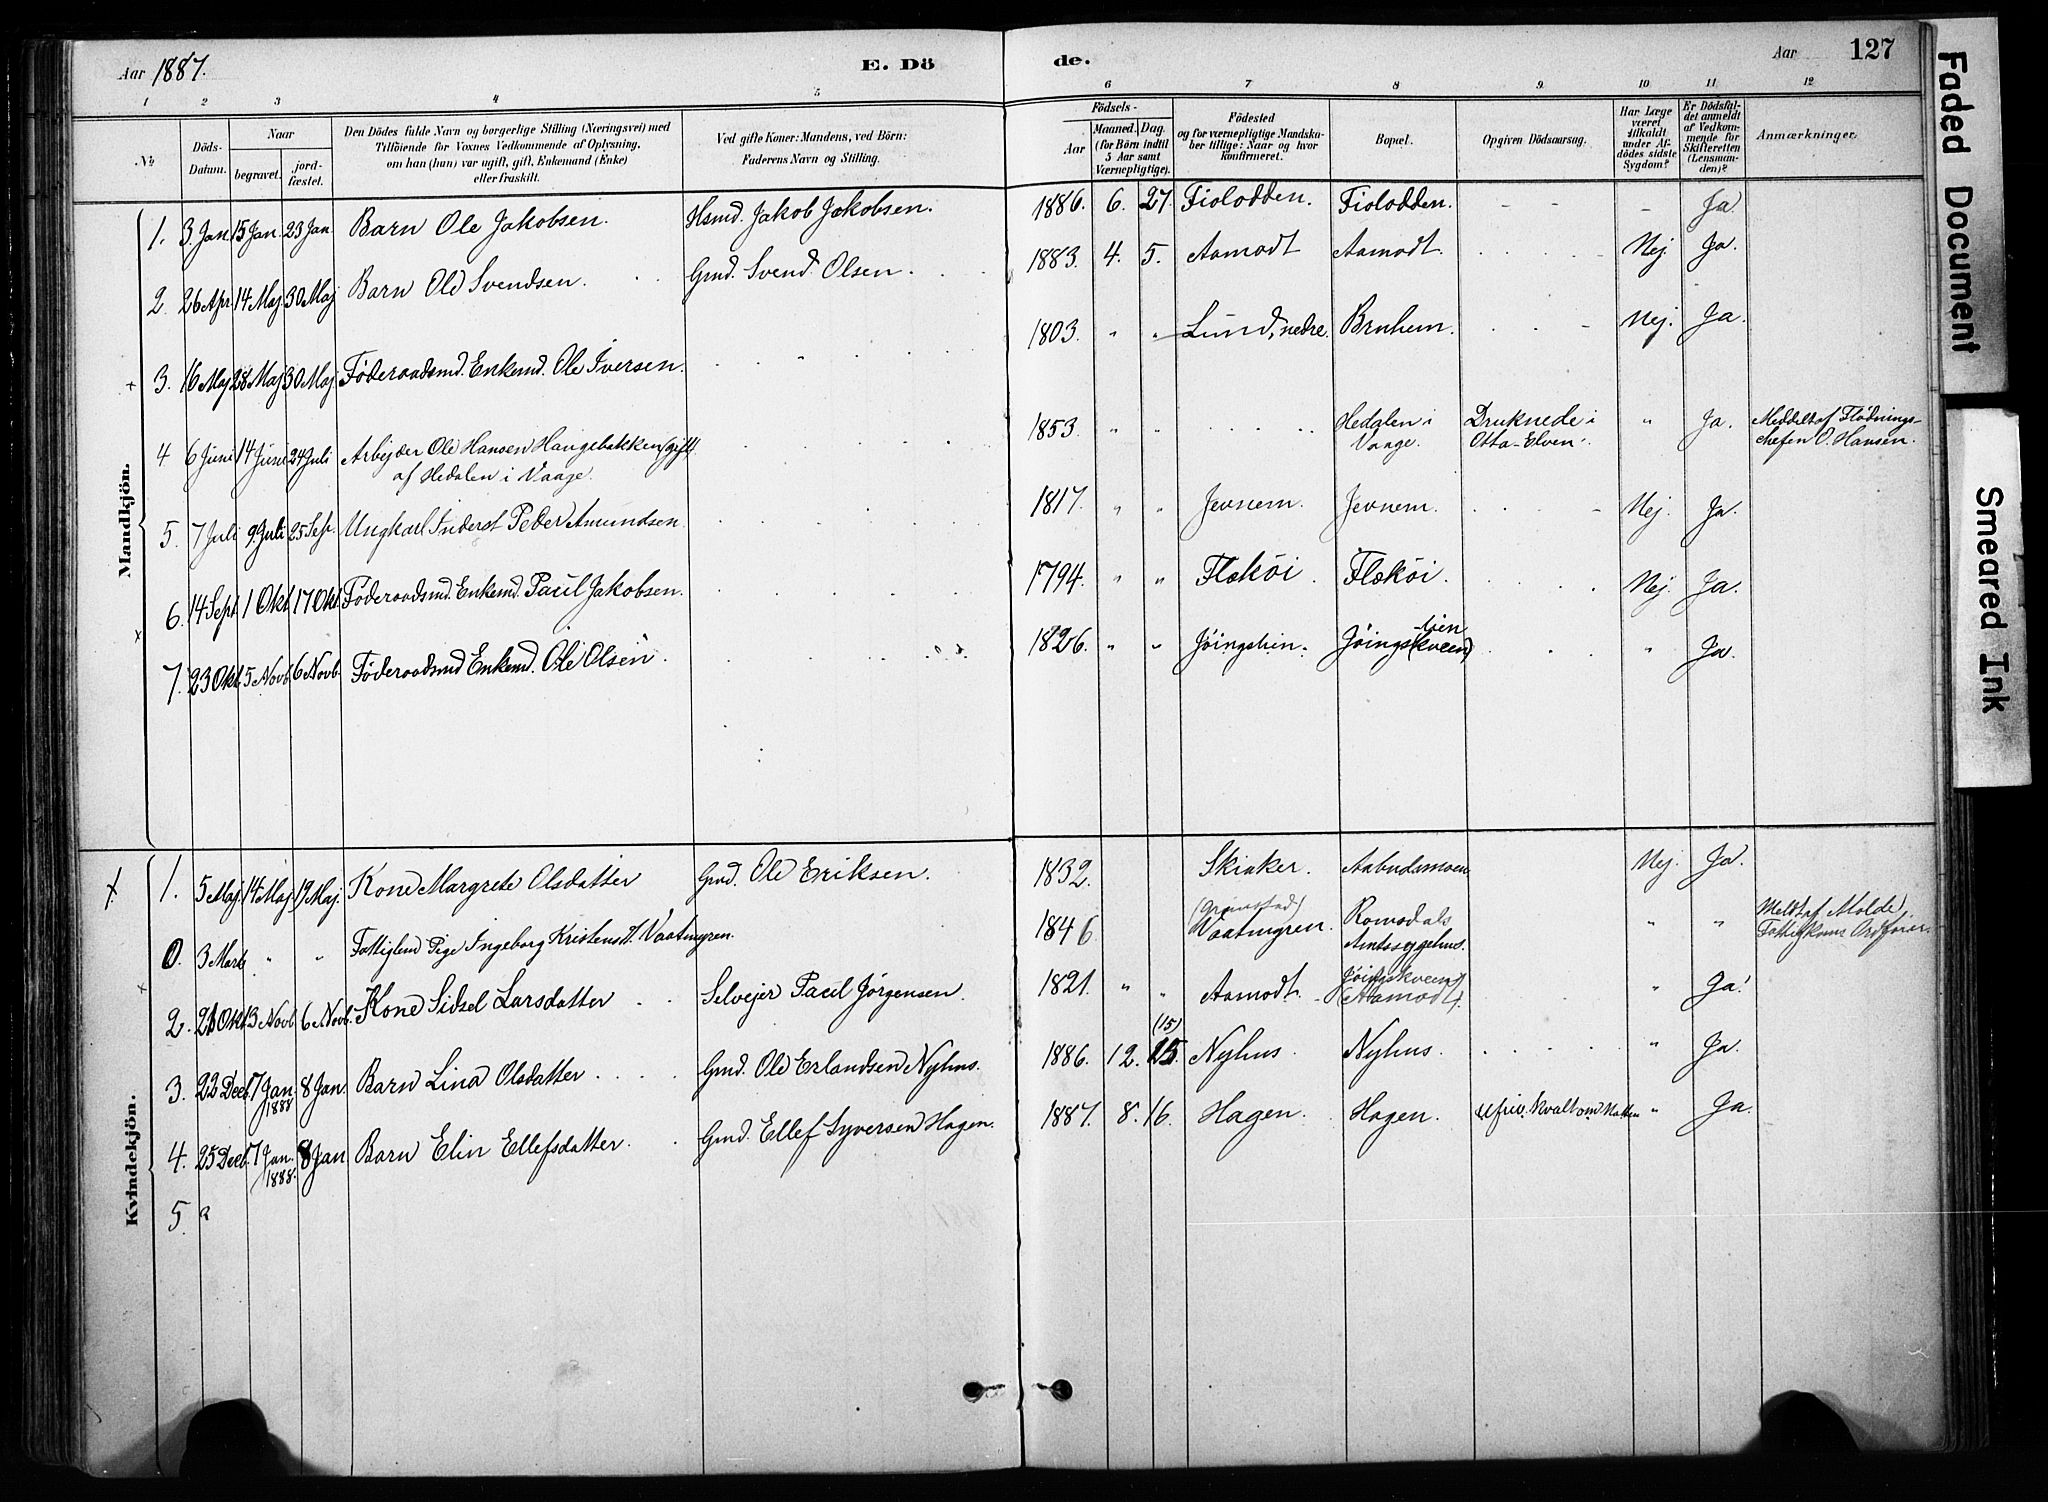 Aar 1887. E. Döde. Aar 127
1 2 3 4 5 6 7 8 9 10 11 12
No
Döds-Datum.
Naar
begravet.
jordfæstet.
Den Dödes fulde Navn og borgerlige Stilling (Næringsvei) med
Tilföiende for Voxnes Vedkommende af Oplysning,
om han (hun) var ugift, gift, Enkemand (Enke)
eller fraskilt.
Ved gifte Koner: Mandens, ved Börn:
Faderens Navn og Stilling.
Födsels-
Aar
Maaned. Dag.
(for Börn indtil
5 Aar samt
Værnepligtige).
Födested
og for værnepligtige Mandska-
ber tillige: Naar og hvor
konfirmeret.
Bopæl.
Opgiven Dödsaarsag.
Har Læge
været
tilkaldt
under Af-
dödes sidste
Sygdom?
Er Dödsfal-
det anmeldt
af Vedkom-
mende for
Skifteretten
(Lensman-
den)?
Anmærkninger.
Mandkjön.
1. 3. Jan. 15 Jan. 23 Jan. Barn Ole Jakobsen. Hsmd. Jakob Jakobsen. 1886. 6. 27. Fiolodden. Fiolodden. - - - Ja.
2. 26 Apr. 14 Maj. 30 Maj. Barn Ole Svendsen. Grnd. Svend Olsen. 1883. 4. 5. Aamodt Aamodt. Nej. Ja.
+ 3. 16 Maj. 28 Maj. 30 Maj. Föderaadsmd. Enkemd. Ole Iversen. 1803. " " Lund, nedre. Brnhem. Nej. Ja.
4 6 Juni 14 Juni 24 Juli Arbejder Ole Hansen Haugebakken (gift)
af Hedalen i Vaage. 1853. " " Hedalen i
Vaage. Druknede i
Otta-Elven. " Ja. Meddelt af Flødnings-
chefen O. Hansen.
5. 7 Juli 9. Juli 25 Sep. Ungkarl Inderst Peder Amundsen. 1817. " " Jevnem. Jevnem. Nej. Ja.
6. 14 Sept. 1 Okt. 17 Okt. Föderaadsmd. Enkemd. Paul Jakobsen. 1794. " " Flækøi. Flækøi. Nej. Ja.
x 7. 23 Okt. 5 Novb. 6 Novb. Föderaadsmd. Enkemd. Ole Olsen. 1826. " " Jöingslien. Jöingslien
(kveen) " Ja.
Kvindekjön.
x 1. 5 Maj. 14 Maj. 19 Maj. Kone Margrete Olsdatter Grnd. Ole Eriksen. 1832. Skiaker. Aabudsmoen Nej. Ja.
0. 3 Marts " " Fattiglem Pige Ingeborg Kristensdt. Vaatmyren. 1846 (Grimstad)
Vaatmyren. Romsdals
Amtssygehus. " " Meldt af Molde
Fattigkoms Ordfører.
+ 2. 21 Okt. 3 Novb. 6 Novb. Kone Sidsel Larsdatter Selvejer Paul Jørgensen. 1821. " " Aamodt. Jöingskveen
(Aamodt). " Ja.
3. 22 Decb. 7 Jan.
1888 8 Jan. Barn Lina Olsdatter Grnd. Ole Erlandsen Nyhus. 1886. 12. (15)
25. Nyhus. Nyhus. " Ja.
4. 25 Decb. 7 Jan.
1888. 8 Jan Barn Elin Ellefsdatter. Grnd. Ellef Syversen Hagen. 1887. 8. 16. Hagen. Hagen. Ufriv. Kvalt om Natten " Ja.
5.
Faded Document
Smeared Ink